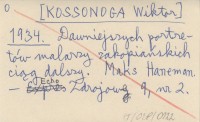 [KOSSONOGA Wiktor]
1934. Dawniejszych portre-
tów malarzy zakopiańskich
ciąg dalszy. Maks Haneman.
— Echo Zdrojowe 9, nr 2.